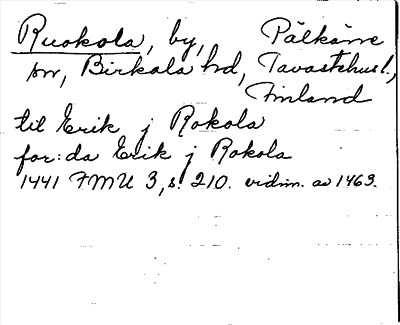 Ruokola, by, Pälkäne
sn, Birkala hd, Tavastehus l.,
Finland
till Erik j Rokola
for: da Erik j Rokola
1441 FMU 3, s. 210. vidim. av 1463.